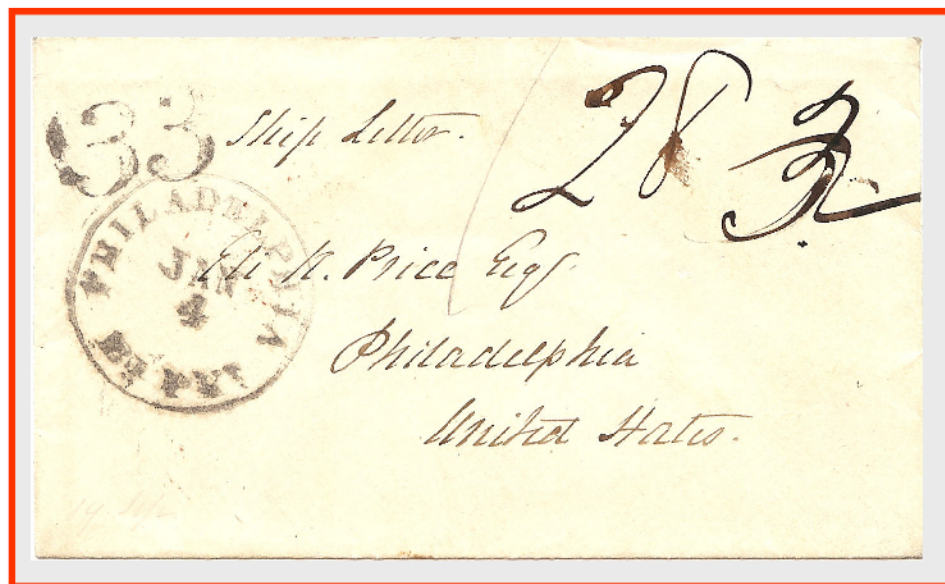 33 Ship Letter. 28
PHILADELPHIA
JAN
4
Eli K. Price Esqr.
Philadelphia
United States.